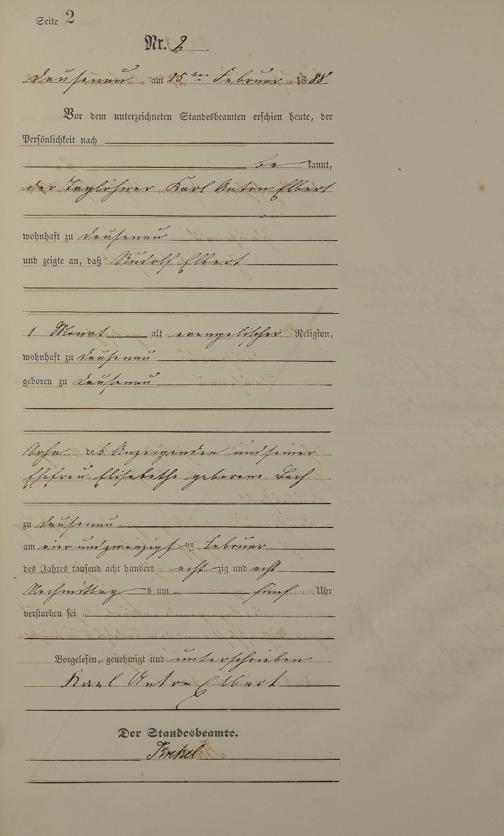 Seite 2
Nr. 2
Dausenau am 25ten Februar 1888
Vor dem unterzeichneten Standesbeamten erschien heute, der
Persönlichkeit nach
be kannt,
der Taglöhner Karl Anton Elbert
wohnhaft zu Dausenau
und zeigte an, daß Rudolf Elbert
1 Monat alt evangelischer Religion,
wohnhaft zu Dausenau
geboren zu Dausenau
Sohn des Anzeigenden und seiner
Ehefrau Elisabethe geborene Bach
zu Dausenau
am vier und zwanzigsten Februar
des Jahres tausend acht hundert acht zig und acht
Nachmittags um fünf Uhr
verstorben sei
Vorgelesen, genehmigt und unterschrieben
Karl Anton Elbert
Der Standesbeamte.